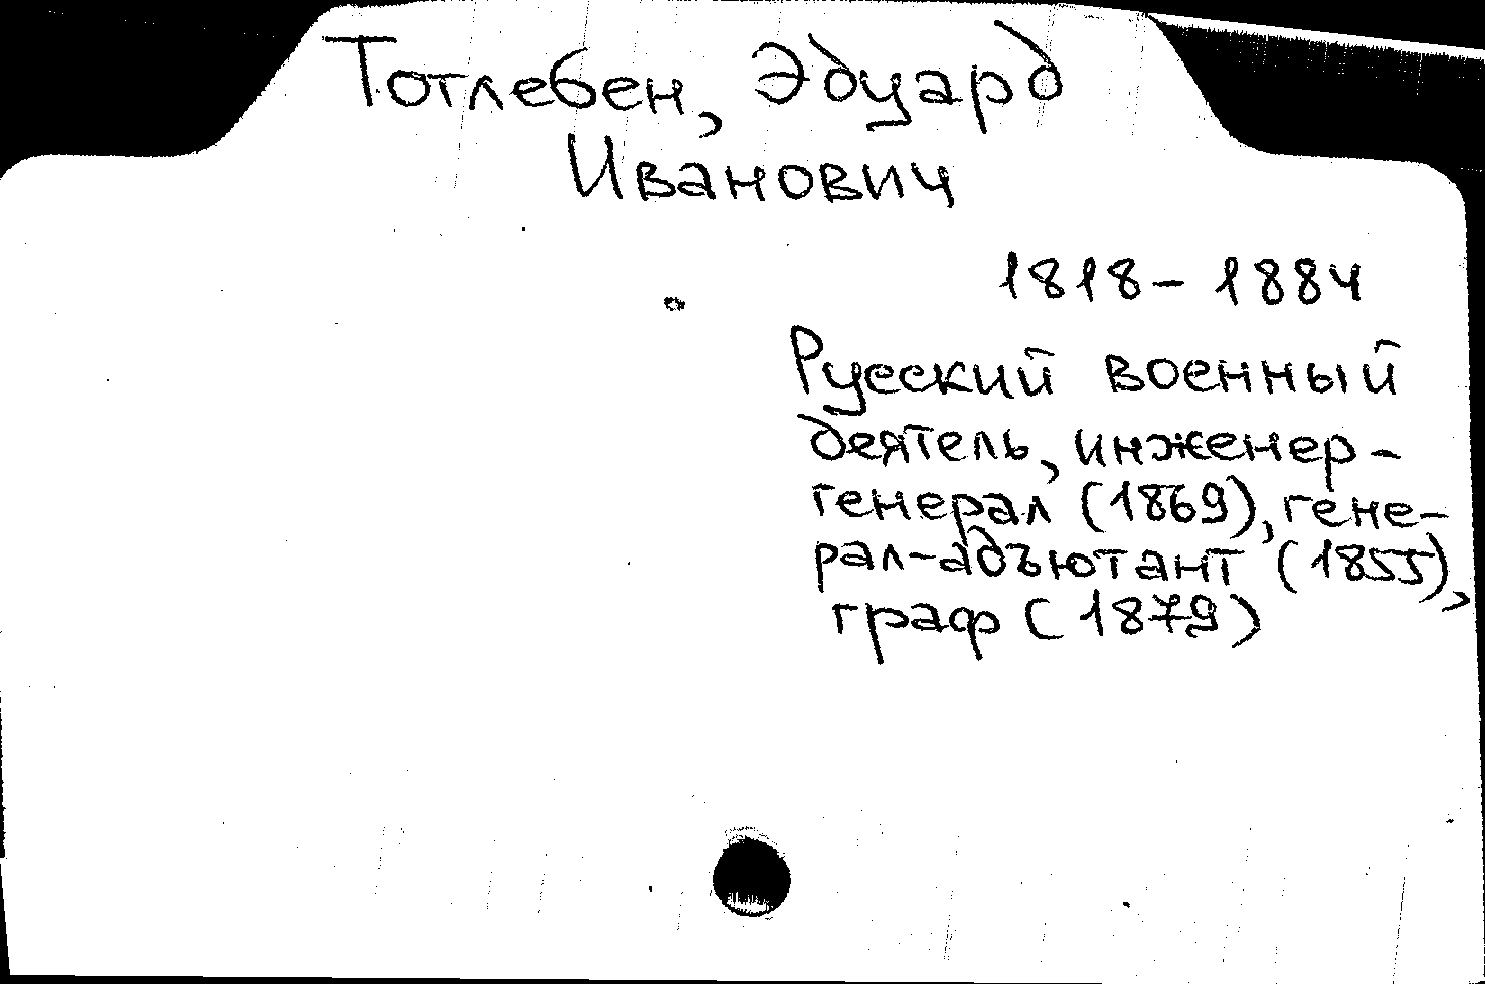 Тотлебен, Эдуард
Иванович
1818 - 1884
Русский военный
деятель, инженер-
генерал (1869), гене-
рал-адъютант (1855),
граф (1879)